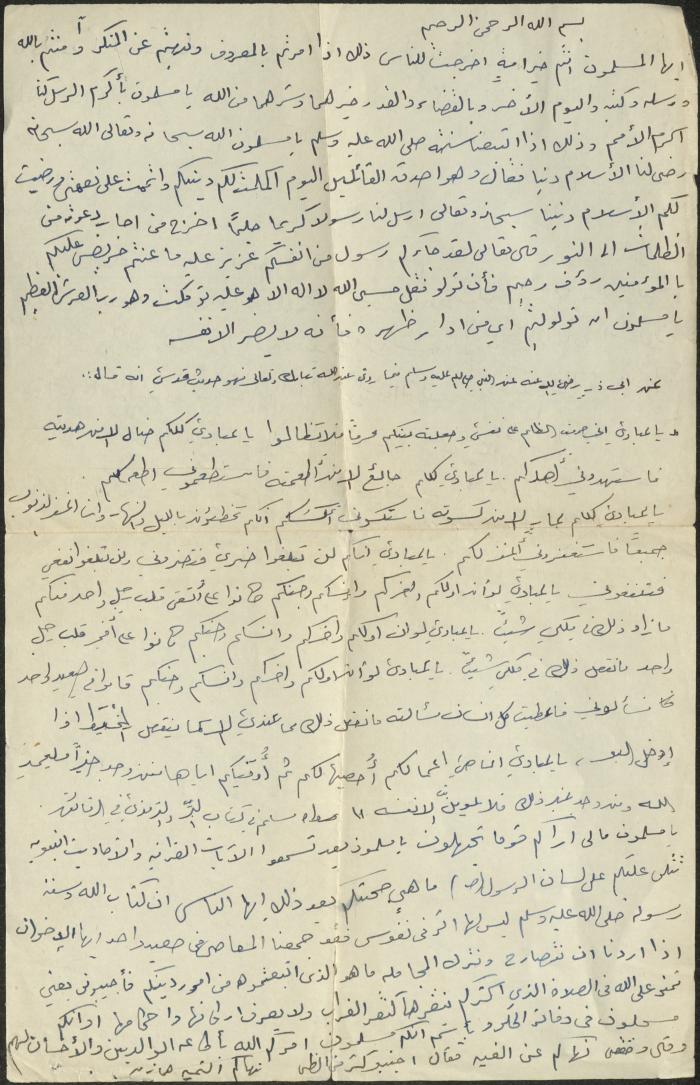 بسم الله الرحمن الرحيم
ايها المسلمون انتم خير امة اخرجت للناس ذلك اذا امرتم بالمعروف ونهيتم عن المنكر وآمنتم بالله
ورسله وكتبه واليوم الأخر وبالقضاء والقدر خيرهما وشرهما من الله يا مسلمون بأكرم الرسل كنا
اكرم الأمم وذلك اذا اتبعنا سنته صلى الله عليه وسلم يا مسلمون الله سبحانه وتعالى الله سبحانه
رضى لنا الأسلام دينا فقال وهو اصدق القائلين اليوم اكملت لكم دينكم واتممت على نعمتي ورضيت
لكم الأسلام دينا سبحانه وتعالى ارسل لنا رسولا كريما حليما اخرج من اجاب دعوته من
الظلمات الى النور قال تعالى لقد جاءكم رسول من انفسكم عزيز عليه ما عنتم حريص عليكم
بالمؤمنين رؤف رحيم فأن تولو فقل حسبي الله لا اله الا هو عليه توكلت وهو رب العرش العظيم
يا مسلمون ان توليتم اي من ادار ظهره فأنه لا يضر الا نفسه
عن ابي ذر رضي الله عنه عن النبي صلى الله عليه وسلم فيما روى عن الله تبارك وتعالى فهو حديث قدسي انه قال :.
يا عبادي اني حرمت الظلم على نفسي وجعلته بينكم محرماً فلا تظالموا يا عبادي كلكم ضال الا من هديته
فاستهدوني أهدكم . يا عبادي كلكم جائع الا من أطعمته فاستطعموني اطعمكم
يا عبادي كلكم عار الا من كسوته فاستكسوني أكسكم انكم تخطئون بالليل والنهار وانا اغفر الذنوب
جميعاً فاستغفروني أغفر لكم . يا عبادي انكم لن تبلغوا ضري فتضروني ولن تبلغوا نفعي
فتنفعوني يا عبادي لو أن اولكم واخركم وانسكم وجنكم كانوا على أتقى قلب رجل واحد منكم
ما زاد ذلك في ملكي شيئاً . يا عبادي لو ان اولكم واخركم وانسكم وجنكم كانوا على أفجر قلب رجل
واحد ما نقص ذلك في ملكي شيئاً . يا عبادي لو أن اولكم واخركم وانسكم وجنكم قاموا في صعيد واحد
فسألوني فاعطيت كل انسان مسألته ما نقص ذلك مما عندي الا كما ينقص المخيط اذا
إدخل البحر ، يا عبادي انما هي اعمالكم أُحصيها لكم ثم أوفيكم اياها فمن وجد خيراً فليحمد
الله ومن وجد غير ذلك فلا يلومن الا نفسه رواه مسلم في كتاب البر والترمذي في
يا مسلمون مالي اراكم قوما تجهلون يا مسلمون بعد تسمعوا الآيات القرآنيه والأحاديث النبويه
تتلى عليكم على لسان الرسول (ص) ما هي حجتكم بعد ذلك ايها الناس ان كتاب الله وسنة
رسوله صلى الله عليه وسلم ليس لها اثر في نفوس فقد جمعنا المعاصي في صعيد واحد ايها الإخوان
اذا اردنا ان نتصارح ونترك المجامله ما هو الذي اتبعتموه من امور دينكم فأجيبوني يعني
على الله في الصلاة الذي اكثركم ينقرها كنقر الغراب ولا يعرف اركانها واحكامها او انكم
امركم الله بأطاعه الوالدين والأحسان اليهم
نهاكم عن الغيبه فقال اجتنبو كثيرا من الظن نهاكم